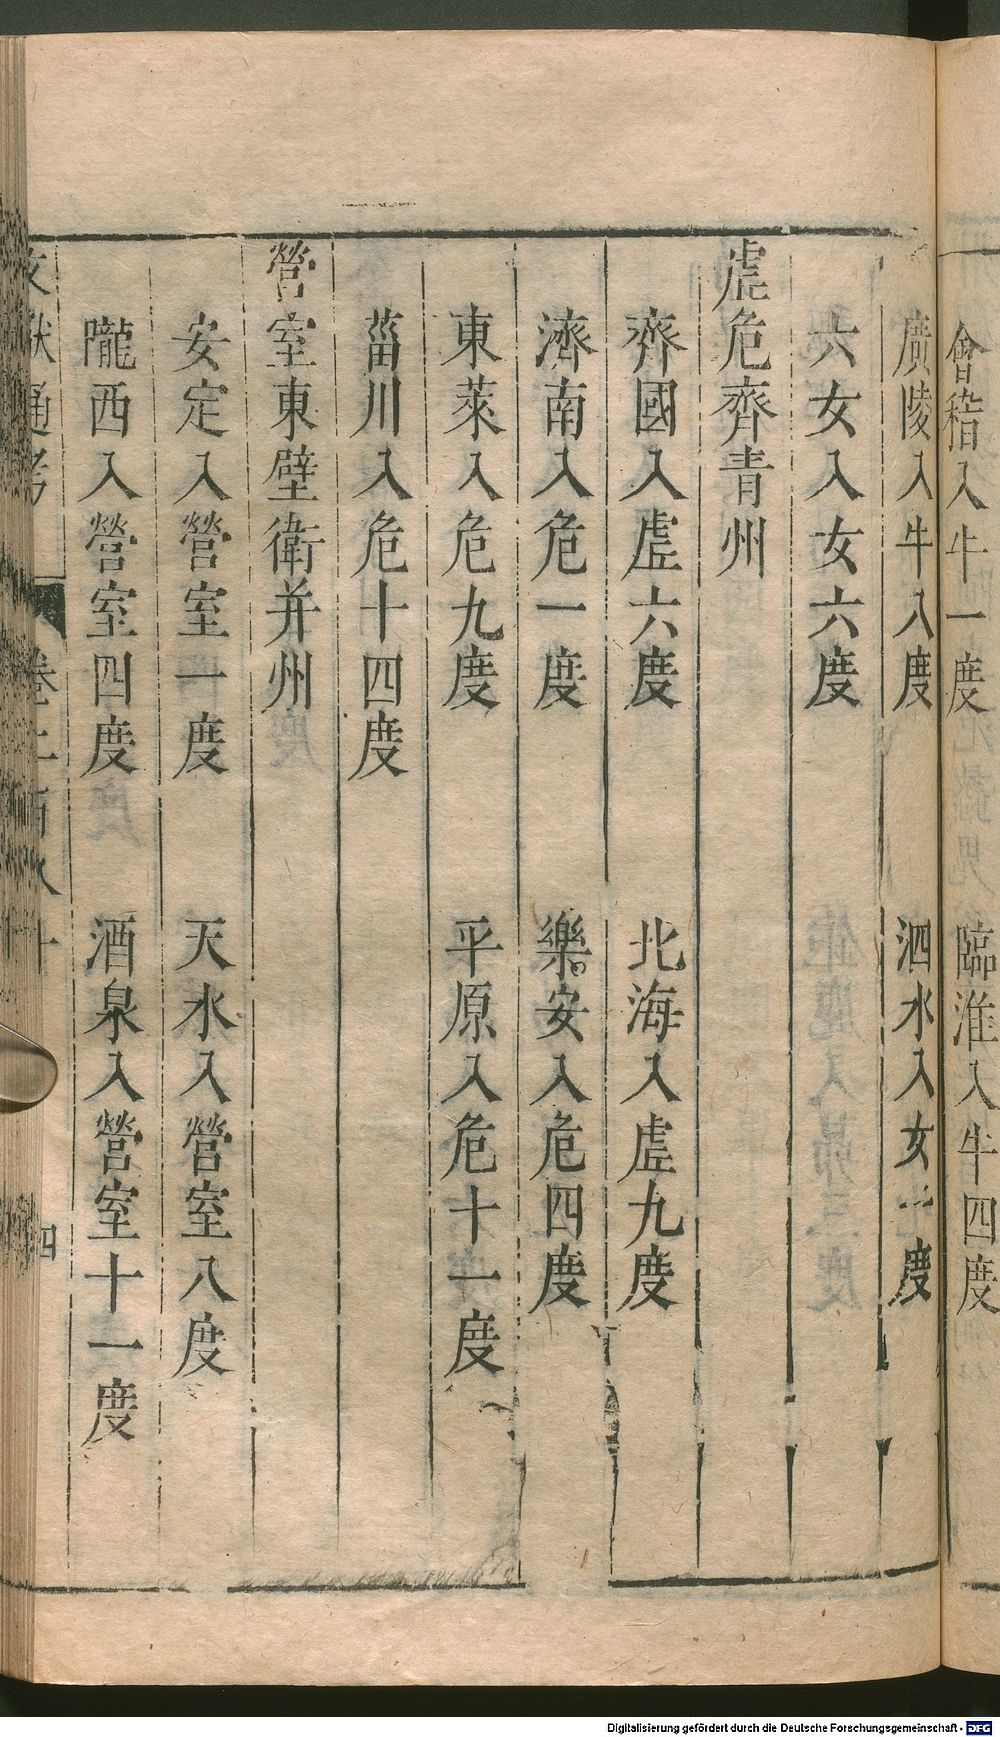 會稽入牛一度 臨淮入牛四度
廣陵入牛八度 泗水入女一度
六女入女六度
虛危齊青州
齊國入虛六度 北海入虛九度
濟南入危一度 樂安入危四度
東萊入危九度 平原入危十一度
菑川入危十四度
營室東壁衛并州
安定入營室一度 天水入營室八度
隴西入營室四度 酒泉入營室十一度
文獻通考 卷二百八十 四
Digitalisierung gefördert durch die Deutsche Forschungsgemeinschaft - DFG